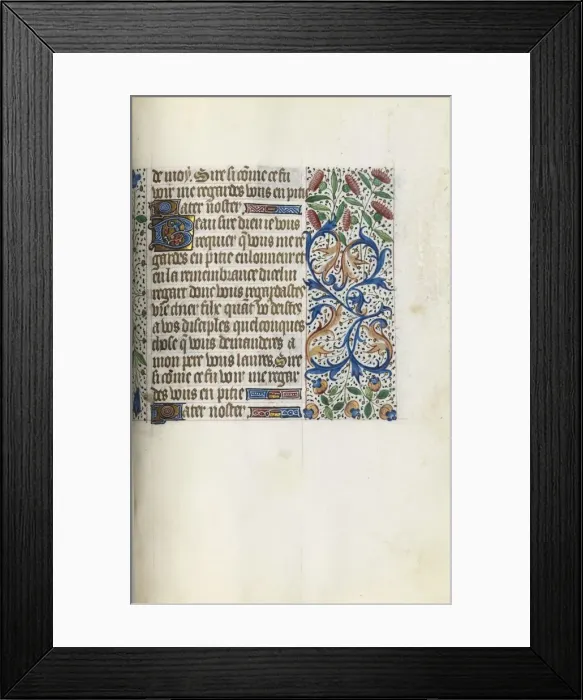 de moy. Sire si cōme ce fu
voir me regardes vous en pitie
Pater noster
Beau sire dieu ie vous
requier q̄ vous me re
gardes en pitie en lonneur
en la remembrance du
regart dont vous regardastes
vie a vos disciples quelconques
chose q̄ vous demanderes a
mon pere vous laures. Sire
si cōme ce fu voir me regar
des vous en pitie
Pater noster